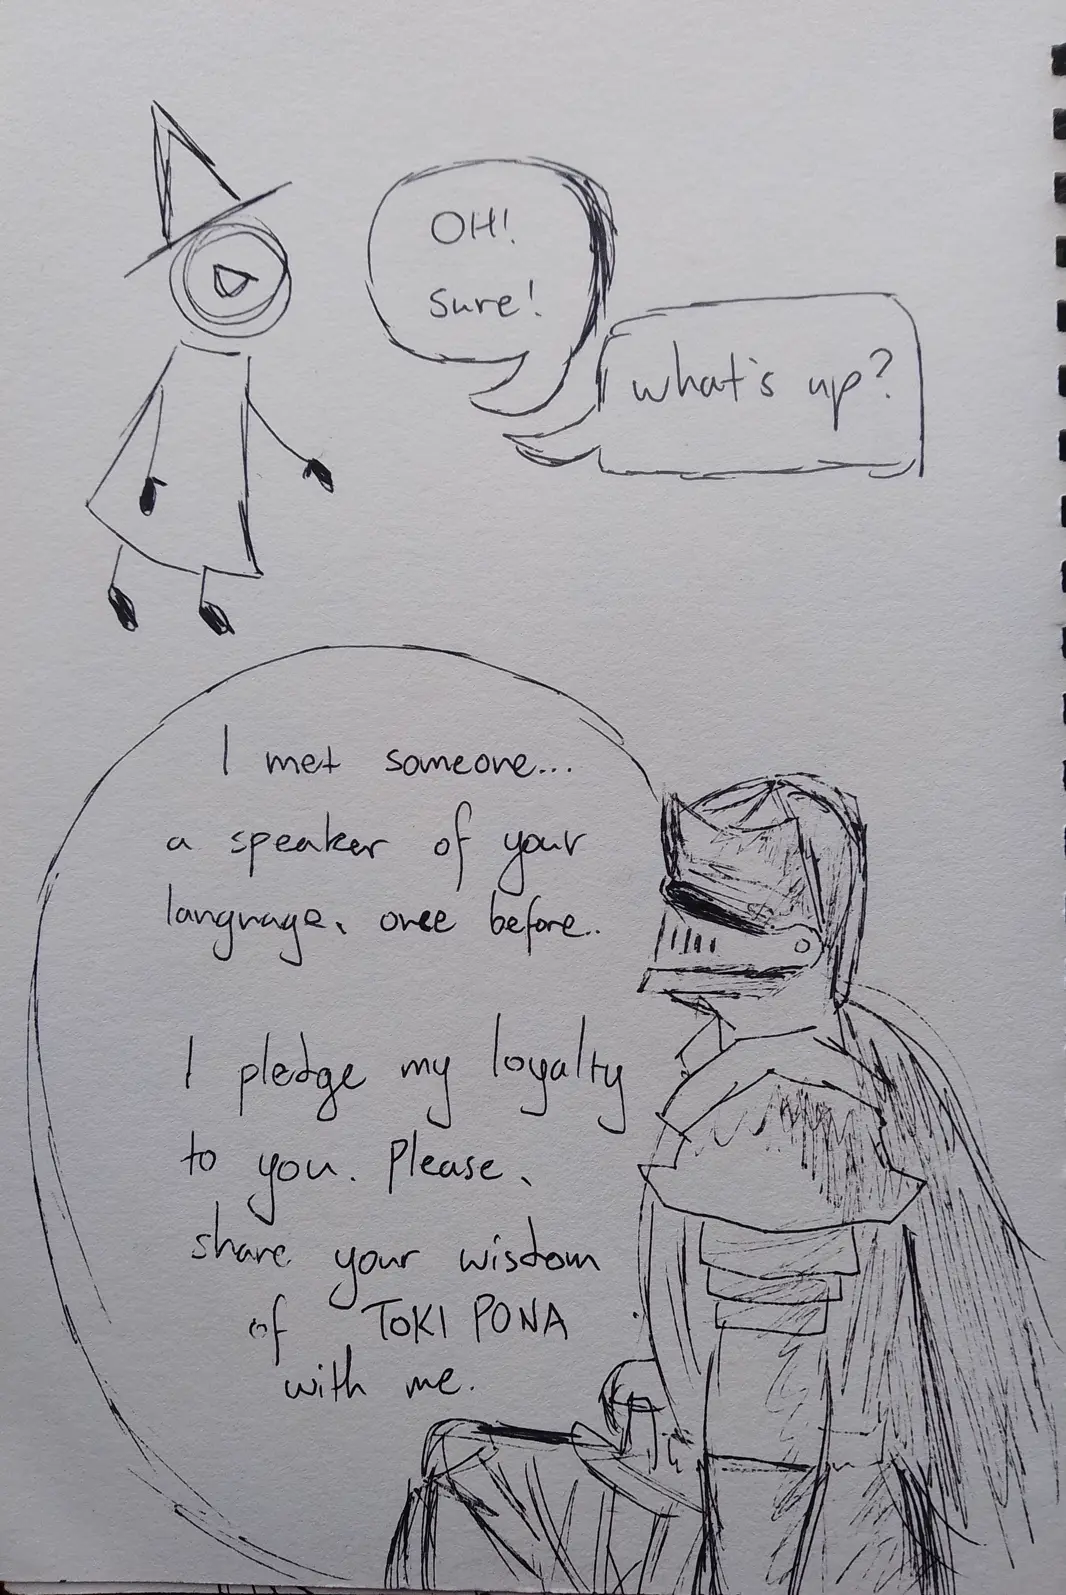 OH!
sure!
what's up?
I met someone...
a speaker of your
language, once before..
I pledge my loyalty
to you. Please,
share your wisdom
of TOKI PONA
with me.